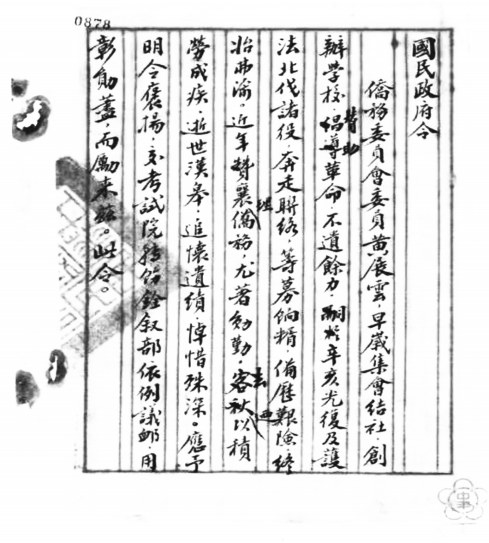 0878
國民政府令
僑務委員會委員黃展雲,早歲集會結社,創
辦學校,贊助倡導革命,不遺餘力,嗣於辛亥光復及護
法北伐諸役,奔走聯絡,籌募餉糈,備歷艱險,終
始弗渝。近年贊襄僑務,尤著劬勤。去客秋以積
勞成疾,逝世漢皋,追懷遺績,悼惜殊深。應予
明令褒揚,交考試院轉飭銓叙部依例議卹,用
彰勛藎,而勵來茲。此令。